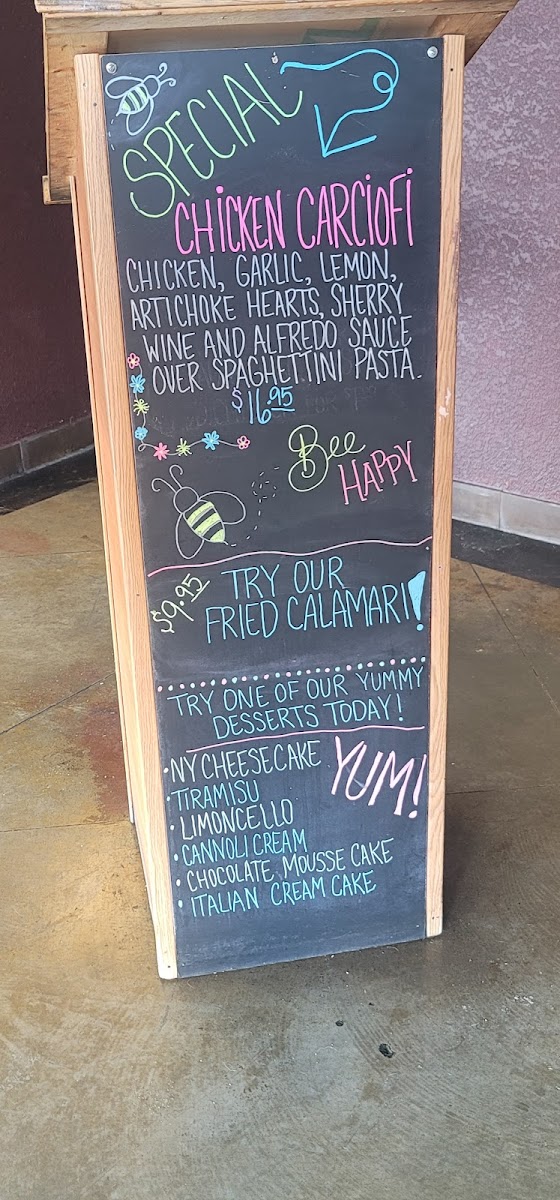 SPECIAL
CHICKEN CARCIOFI
CHICKEN, GARLIC, LEMON,
ARTICHOKE HEARTS, SHERRY
WINE AND ALFREDO SAUCE
OVER SPAGHETTINI PASTA
$16.95
Bee
HAPPY
$9.95
TRY OUR
FRIED CALAMARI!
TRY ONE OF OUR YUMMY
DESSERTS TODAY!
YUM!
• NY CHEESECAKE
• TIRAMISU
• LIMONCELLO
• CANNOLI CREAM
• CHOCOLATE MOUSSE CAKE
• ITALIAN CREAM CAKE